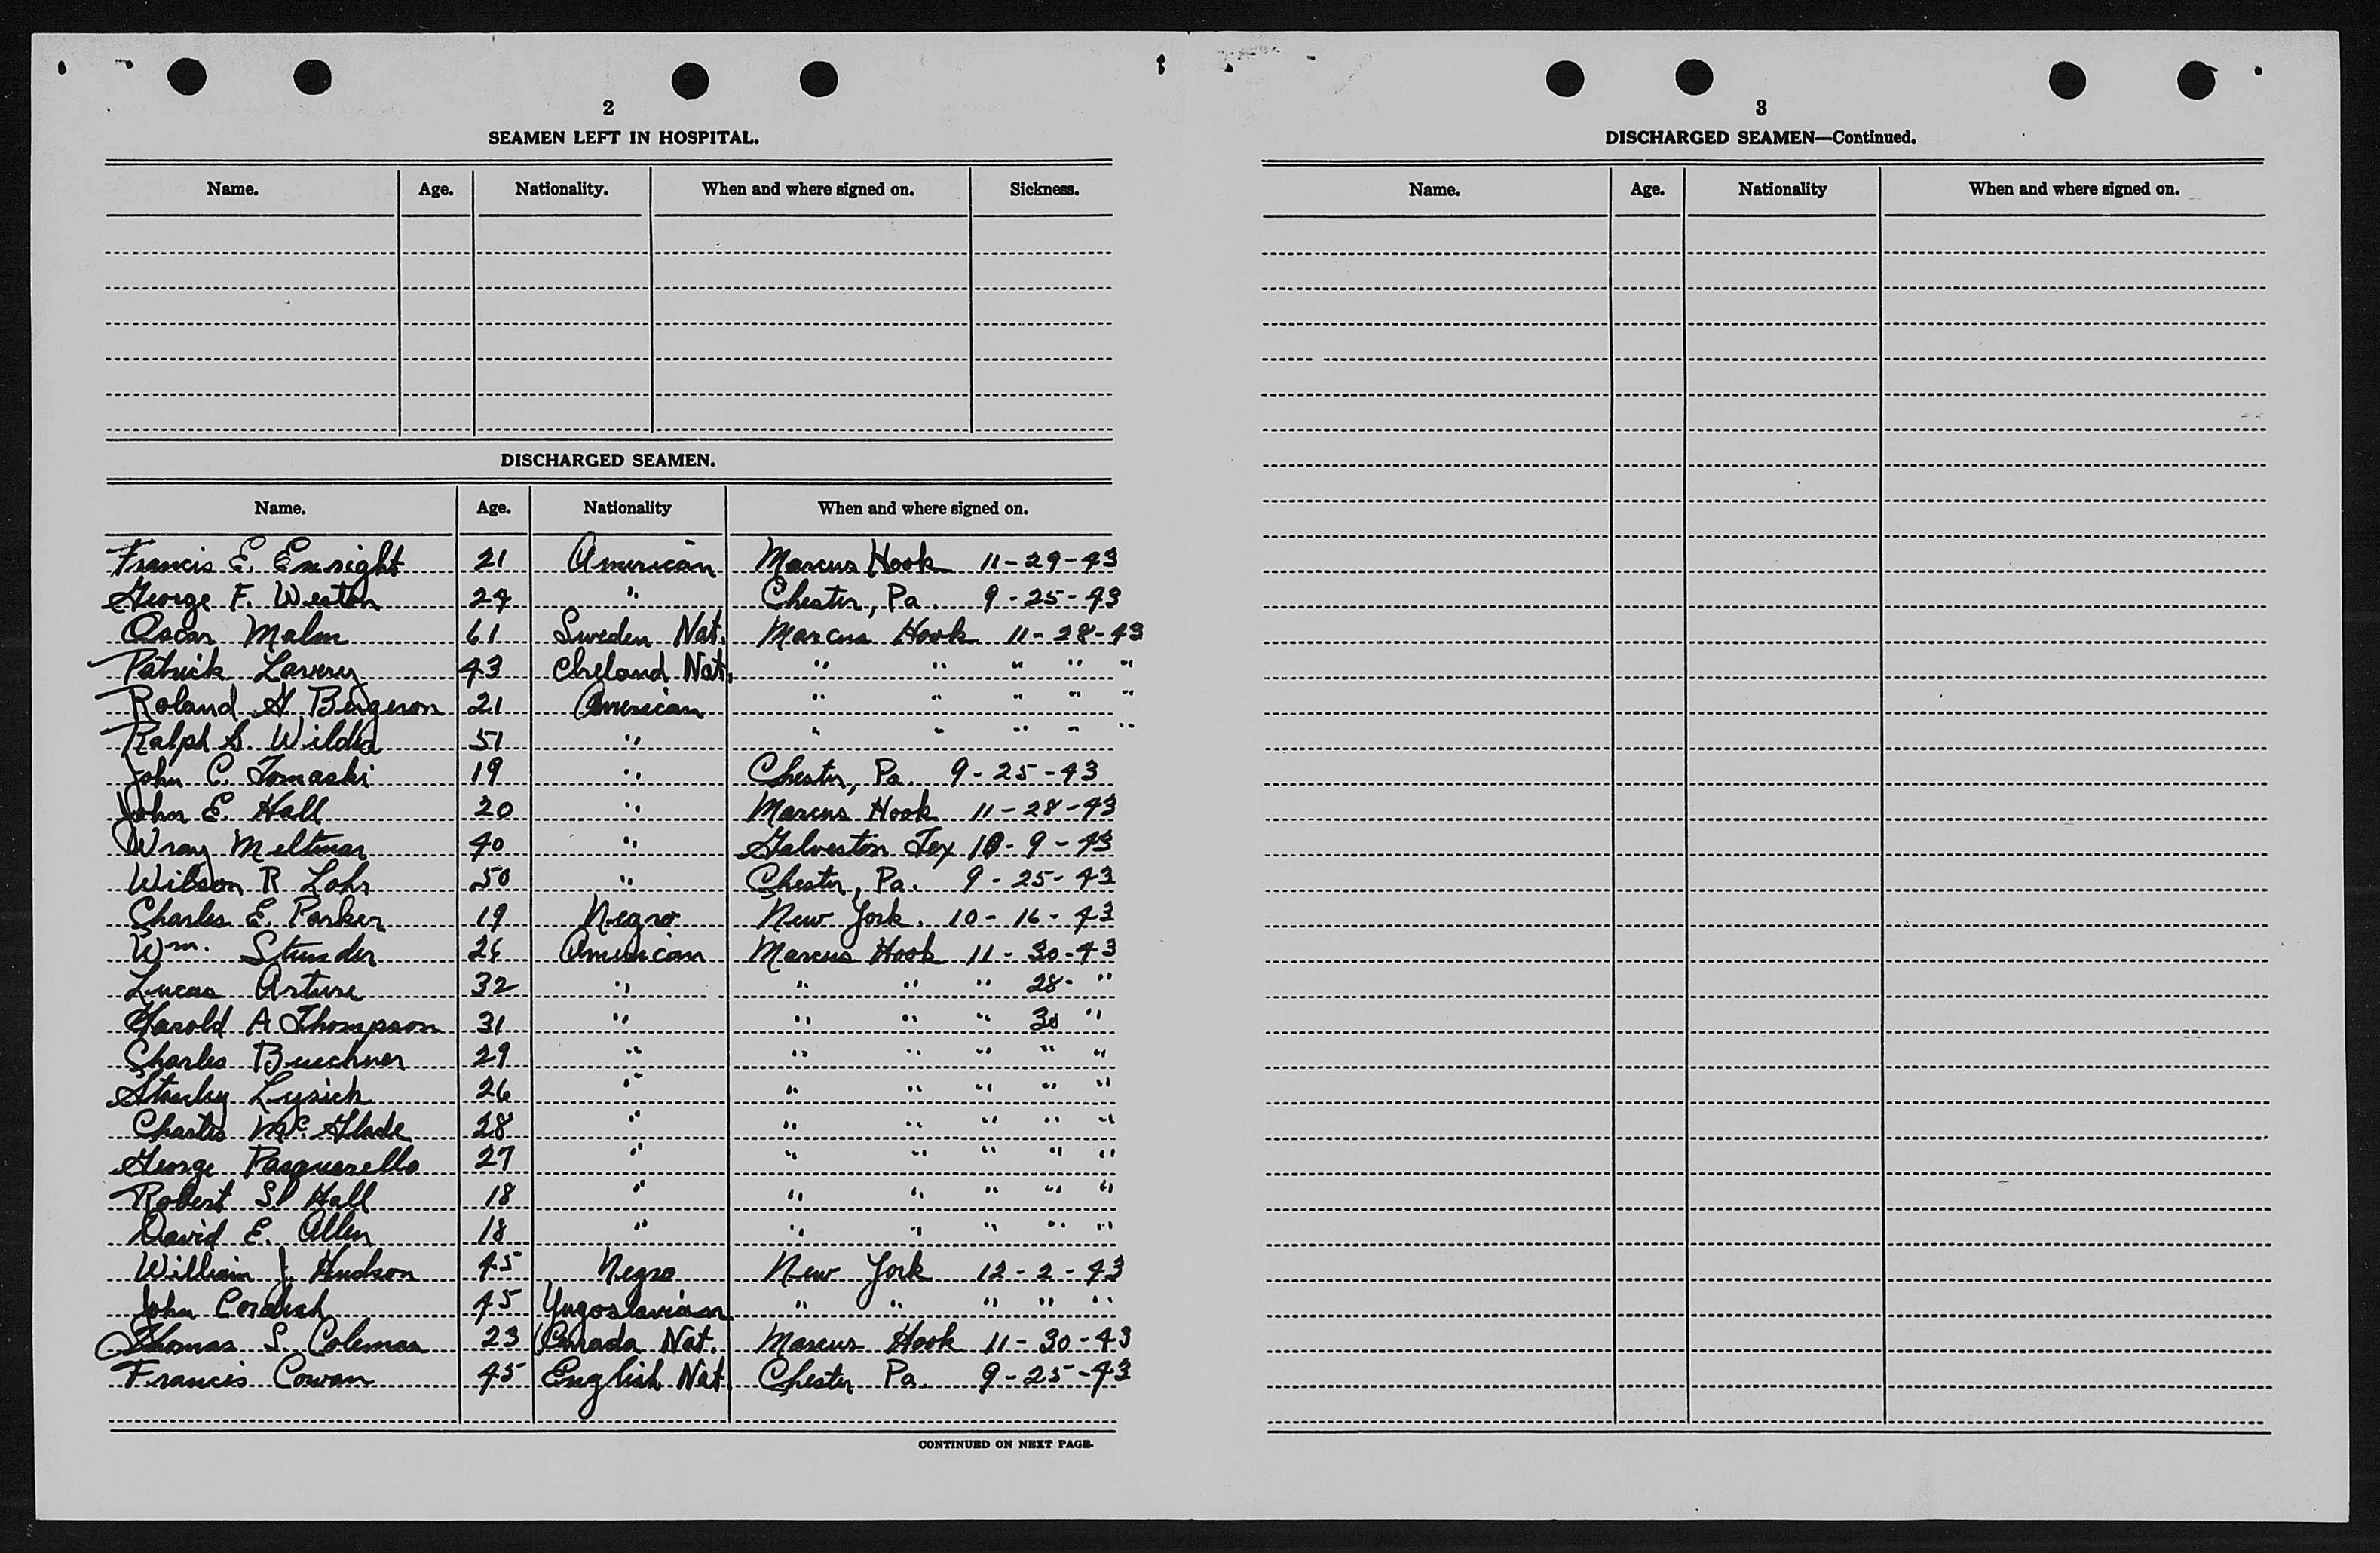 2
SEAMEN LEFT IN HOSPITAL.
Name. Age. Nationality. When and where signed on. Sickness.
DISCHARGED SEAMEN.
Name. Age. Nationality When and where signed on.
Francis E. Enright 21 American Marcus Hook 11-29-43
George F. Weston 24 " Chester, Pa. 9-25-43
Oscar Malm 61 Sweden Nat. Marcus Hook 11-28-43
Patrick Lavery 43 Ireland Nat. " " " " "
Roland H Bergeron 21 American " " " " "
Ralph S. Wilder 51 " " " " " "
John C. Tomaski 19 " Chester, Pa. 9-25-43
John E. Hall 20 " Marcus Hook 11-28-43
Wray Meltmar 40 " Galveston Tex 10-9-43
Wilson R Lohr 50 " Chester, Pa. 9-25-43
Charles E. Parker 19 Negro New York. 10-16-43
Wm. Stunder 26 American Marcus Hook 11-30-43
Lucas Arture 32 " " " " 28- "
Harold A Thompson 31 " " " " 30 "
Charles Buechner 29 " " " " " "
Stanley Lysick 26 " " " " " "
Charles Mc. Glade 28 " " " " " "
George Pasquarello 27 " " " " " "
Robert S. Hall 18 " " " " " "
David E. Allen 18 " " " " " "
William J. Hudson 45 Negro New York 12-2-43
John 45 Yugoslavian " " " " "
Thomas S. Coleman 23 Canada Nat. Marcus Hook 11-30-43
Francis Cowan 45 English Nat. Chester Pa. 9-25-43
CONTINUED ON NEXT PAGE.
3
DISCHARGED SEAMEN—Continued.
Name. Age. Nationality When and where signed on.